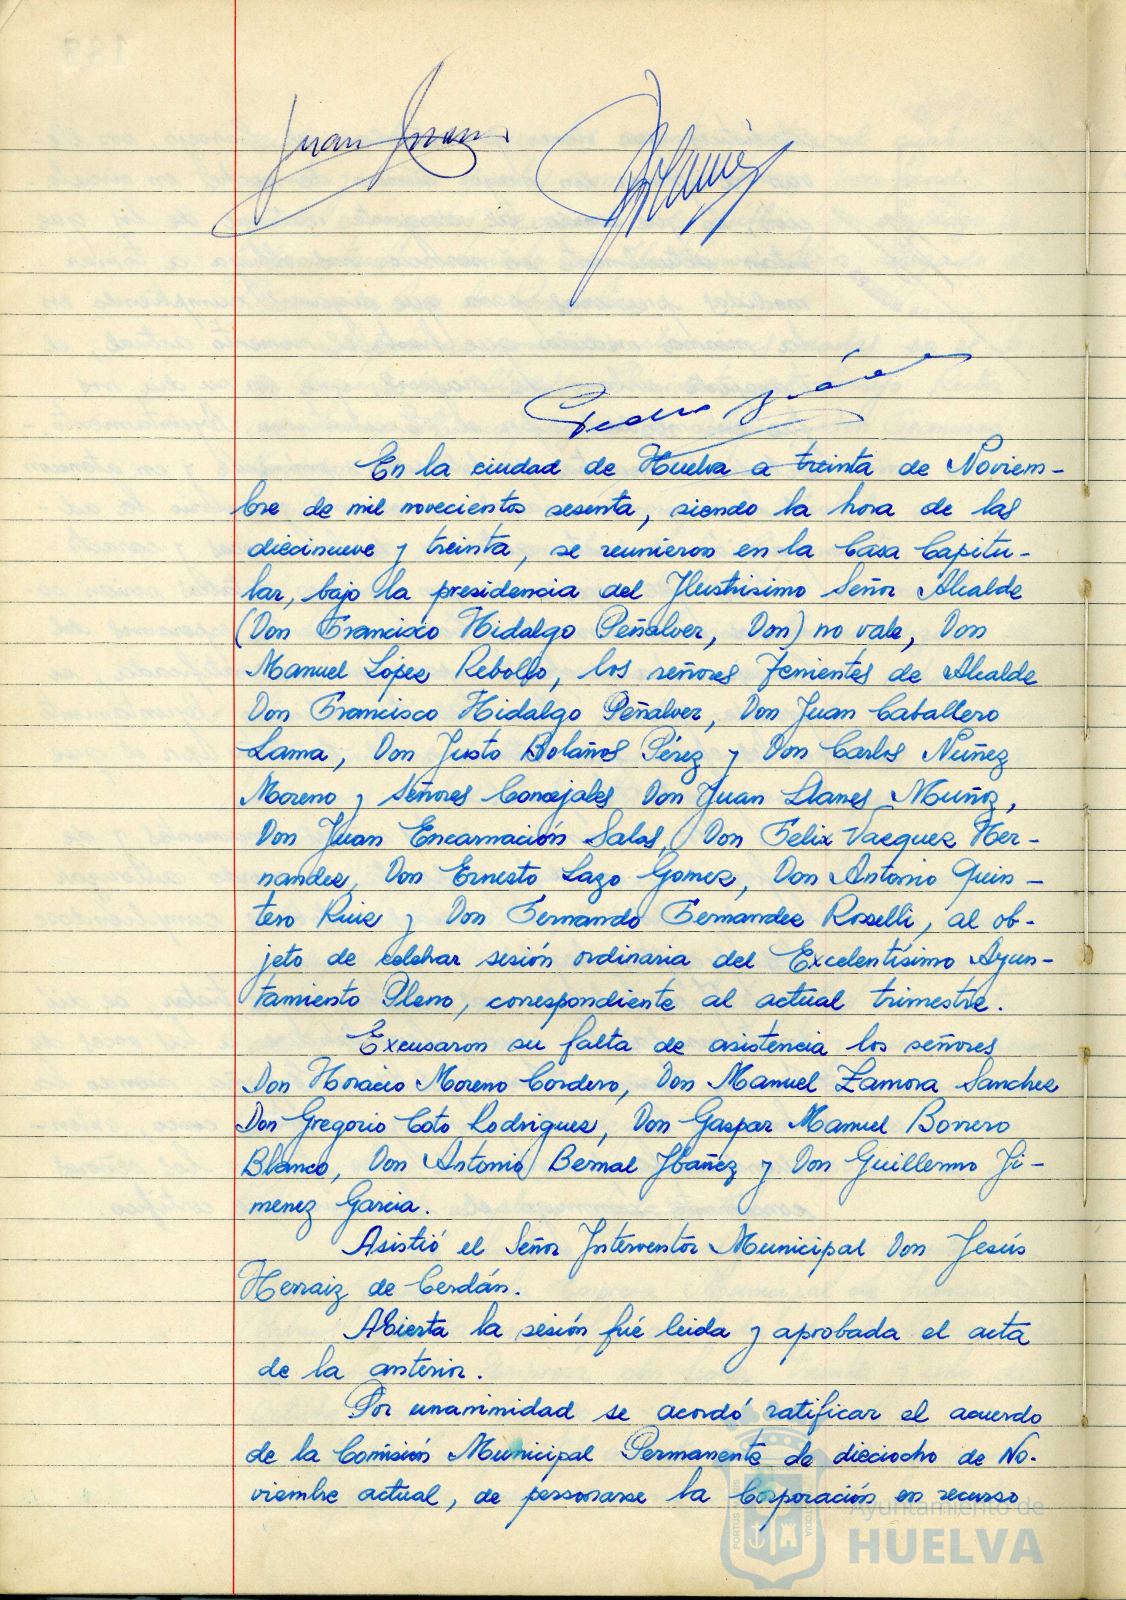 Juan
Pedro
En la ciudad de Huelva a treinta de Noviem-
bre de mil novecientos sesenta, siendo la hora de las
diecinueve y treinta, se reunieron en la Casa Capitu-
lar, bajo la presidencia del Ilustrisimo Señor Alcalde
(Don Francisco Hidalgo Peñalver, Don) no vale, Don
Manuel López Rebollo, los señores Tenientes de Alcalde
Don Francisco Hidalgo Peñalver, Don Juan Caballero
Lama, Don Justo Bolaños Pérez y Don Carlos Núñez
Moreno y Señores Concejales Don Juan Llanes Muñoz,
Don Juan Encarnación Salas, Don Felix Vazquez Her-
nandez, Don Ernesto Lazo Gomez, Don Antonio Quin-
tero Ruiz y Don Fernando Fernandez Roselli, al ob-
jeto de celebrar sesión ordinaria del Excelentísimo Ayun-
tamiento Pleno, correspondiente al actual trimestre.
Excusaron su falta de asistencia los señores
Don Horacio Moreno Cordero, Don Manuel Zamora Sanchez
Don Gregorio Coto Rodriguez, Don Gaspar Manuel Borrero
Blanco, Don Antonio Bernal Ybáñez y Don Guillermo Ji-
menez Garcia.
Asistió el Señor Interventor Municipal Don Jesús
Herraiz de Cerdán.
Abierta la sesión fué leida y aprobada el acta
de la anterior.
Por unanimidad se acordó ratificar el acuerdo
de la Comisión Municipal Permanente de dieciocho de No-
viembre actual, de personarse la Corporación en recurso
Ayuntamiento de
HUELVA